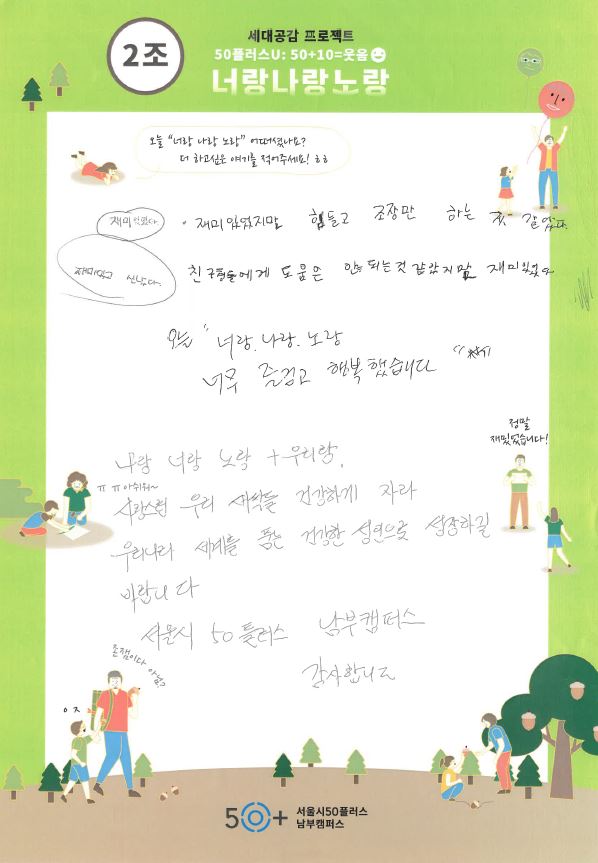 2조
세대공감 프로젝트
50플러스U: 50+10=웃음
너랑나랑노랑
오늘 "너랑 나랑 노랑" 어떠셨나요?
더 하고싶은 얘기를 적어주세요! ㅎㅎ
재미있었다.
재미있었지만 힘들고 조장만 하는 것 같았다.
재미있고 신났다.
친구들에게 도움은 안 되는것 같았지만 재미있었다
오늘 " 너랑. 나랑. 노랑
너무 즐겁고 행복했습니다 "
정말
재밌었습니다!
나랑 너랑 노랑 + 우리랑.
ㅠㅠ 아쉬워~
사랑스런 우리 새싹들 건강하게 자라
우리나라 세계를 품은 건강한 성인으로 성장하길
바랍니다
서울시 50 플러스 남부캠퍼스
감사합니다
존잼이다 아님?
ㅇㅈ
50+ 서울시50플러스
남부캠퍼스